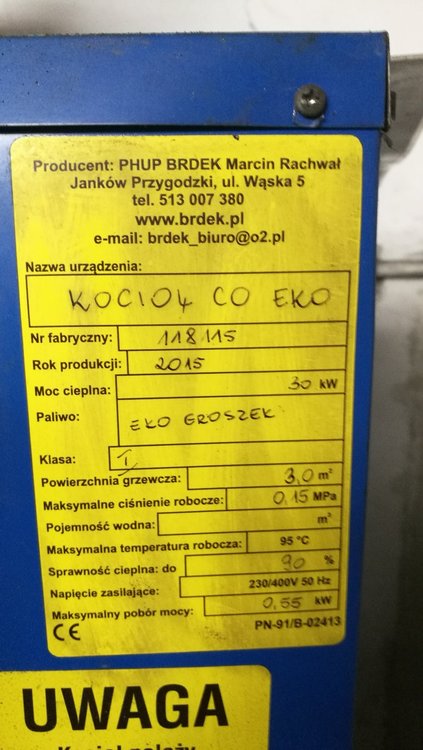 Producent: PHUP BRDEK Marcin Rachwał
Janków Przygodzki, ul. Wąska 5
tel. 513 007 380
www.brdek.pl
e-mail: brdek_biuro@o2.pl
Nazwa urządzenia:
KOCIOŁ CO EKO
Nr fabryczny: 118115
Rok produkcji: 2015
Moc cieplna: 30 kW
Paliwo: EKO GROSZEK
Klasa: I
Powierzchnia grzewcza: 3,0 m²
Maksymalne ciśnienie robocze: 0,15 MPa
Pojemność wodna: m³
Maksymalna temperatura robocza: 95 °C
Sprawność cieplna: do 90 %
Napięcie zasilające: 230/400V 50 Hz
Maksymalny pobór mocy: 0,55 kW
CE PN-91/B-02413
UWAGA